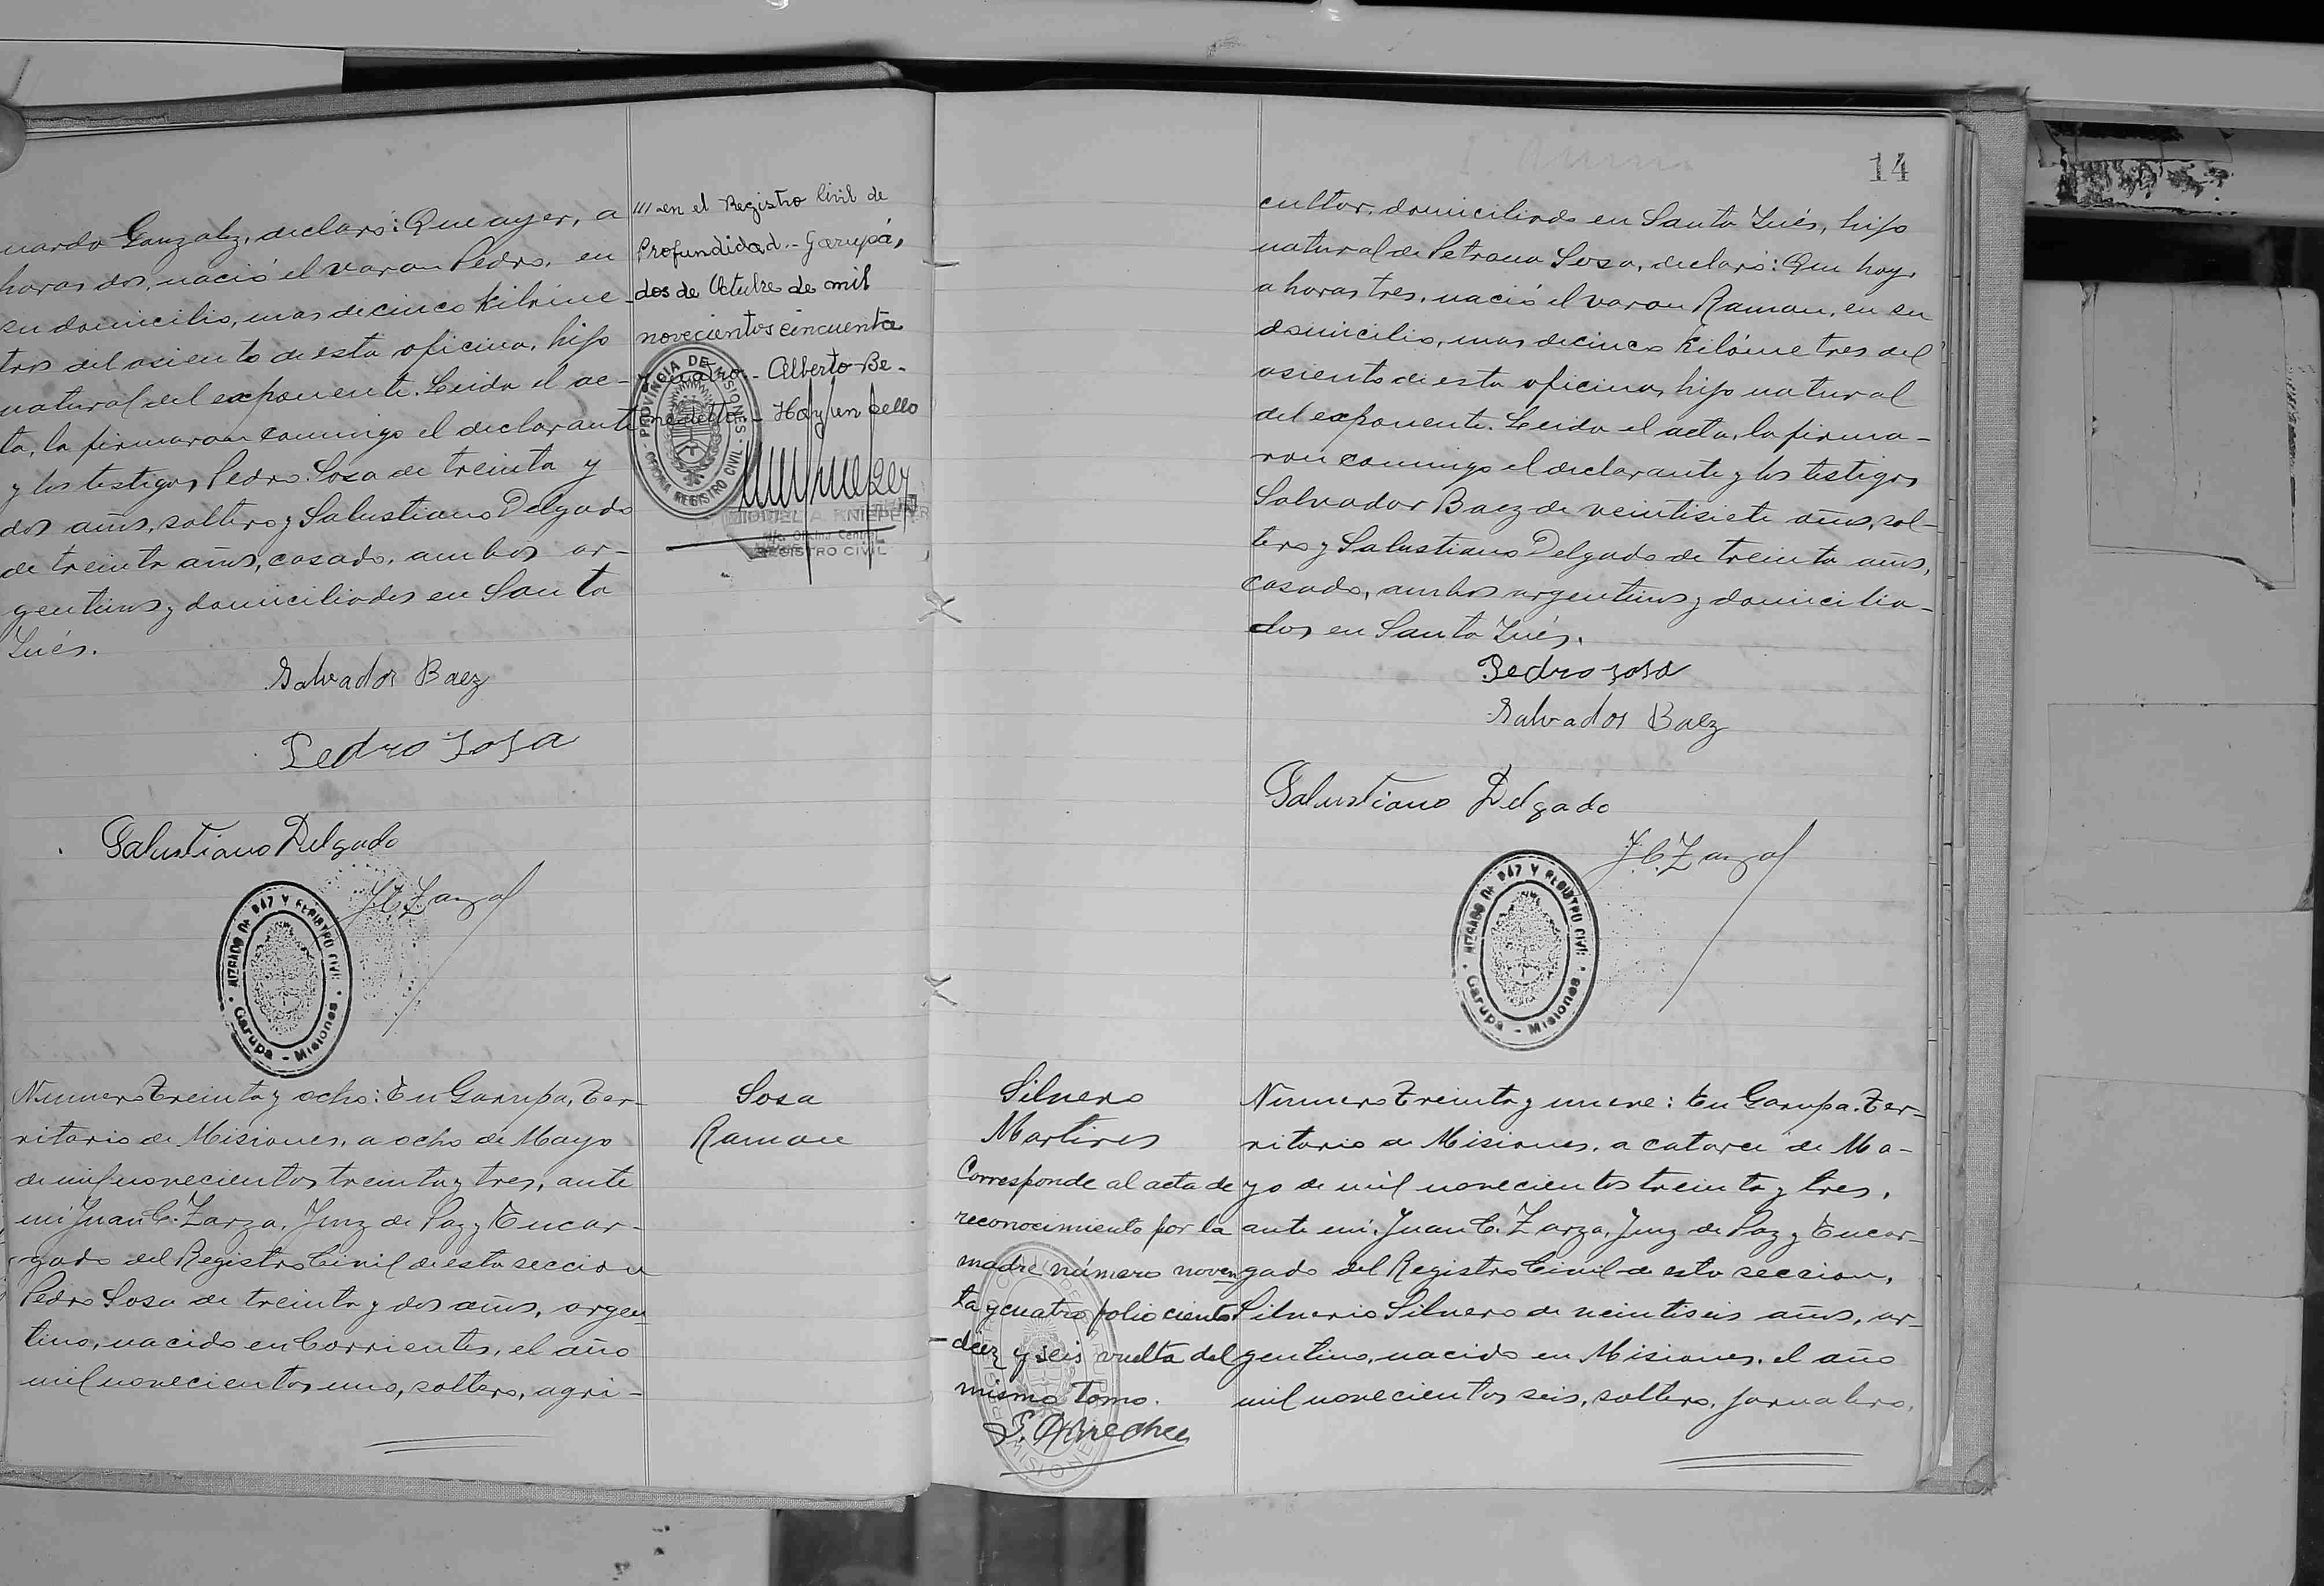 nardo Gonzalez, declaró: Que ayer, a
horas dos, nació el varon Pedro, en
su domicilio, mas de cinco kilóme-
tros del asiento de esta oficina, hijo
natural del exponente. Leida el ac-
ta, la firmaron conmigo el declarante
y los testigos, Pedro Sosa de treinta y
dos años, soltero y Salustiano Delgado
de treinta años, casado, ambos ar-
gentinos y domiciliados en Santa
Inés.
Salvador Baez
Pedro Sosa
Salustiano Delgado
J.C. Zarza
JUZGADO DE PAZ Y REGISTRO CIVIL
Garupa - Misiones
/// en el Registro Civil de
Profundidad.- Garupá,
dos de Octubre de mil
novecientos cincuenta
y cuatro.- Alberto Be-
nedetto.- Hay un sello
PROVINCIA DE MISIONES
OFICINA REGISTRO CIVIL
MIGUEL A. KNIEPEIER
Oficina Central
REGISTRO CIVIL
Numero treinta y ocho: En Garupa, Ter-
ritorio de Misiones, a ocho de Mayo
de mil novecientos treinta y tres, ante
mi Juan C. Zarza, Juez de Paz y Encar-
gado del Registro Civil de esta seccion
Pedro Sosa de treinta y dos años, argen
tino, nacido en Corrientes, el año
mil novecientos uno, soltero, agri-
Sosa
Ramon
14
cultor, domiciliado en Santa Inés, hijo
natural de Petrona Sosa, declaró: Que hoy,
a horas tres, nació el varon Ramon, en su
domicilio, mas de cinco kilómetros del
asiento de esta oficina, hijo natural
del exponente. Leida el acta, la firma-
ron conmigo el declarante y los testigos
Salvador Baez de veintisiete años, sol-
tero y Salustiano Delgado de treinta años,
casado, ambos argentinos y domicilia-
dos en Santa Inés.
Pedro Sosa
Salvador Baez
Salustiano Delgado
J.C. Zarza
JUZGADO DE PAZ Y REGISTRO CIVIL
Garupa - Misiones
Silvero
Martires
Corresponde al acta de
reconocimiento por la
madre número noven
ta y cuatro folio ciento
diez y seis vuelta del
mismo tomo.
Numero treinta y nueve: En Garupa, Ter-
ritorio de Misiones, a catorce de Ma-
yo de mil novecientos treinta y tres,
ante mi, Juan C. Zarza, Juez de Paz y Encar-
gado del Registro Civil de esta seccion,
Silverio Silvero de veintiseis años, ar-
gentino, nacido en Misiones, el año
mil novecientos seis, soltero, jornalero,